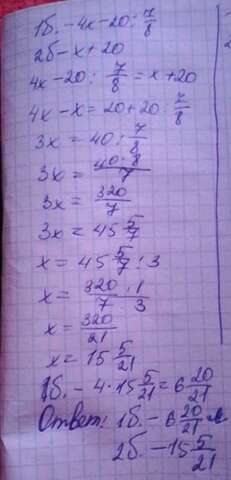 1б. - 4x - 20 : 7/8
2б - x + 20
4x - 20 : 7/8 = x + 20
4x - x = 20 + 20 : 7/8
3x = 40 : 7/8
3x = 40·8/7
3x = 320/7
3x = 45 5/7
x = 45 5/7 : 3
x = 320·1/7·3
x = 320/21
x = 15 5/21
1б. - 4·15 5/21 = 6 20/21
Ответ: 1б. - 6 20/21 л
2б. - 15 5/21